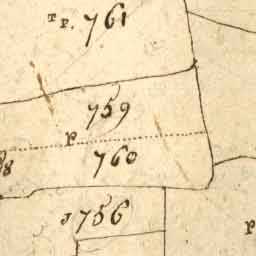 T P. 761
759
P
760
8
J 756
P